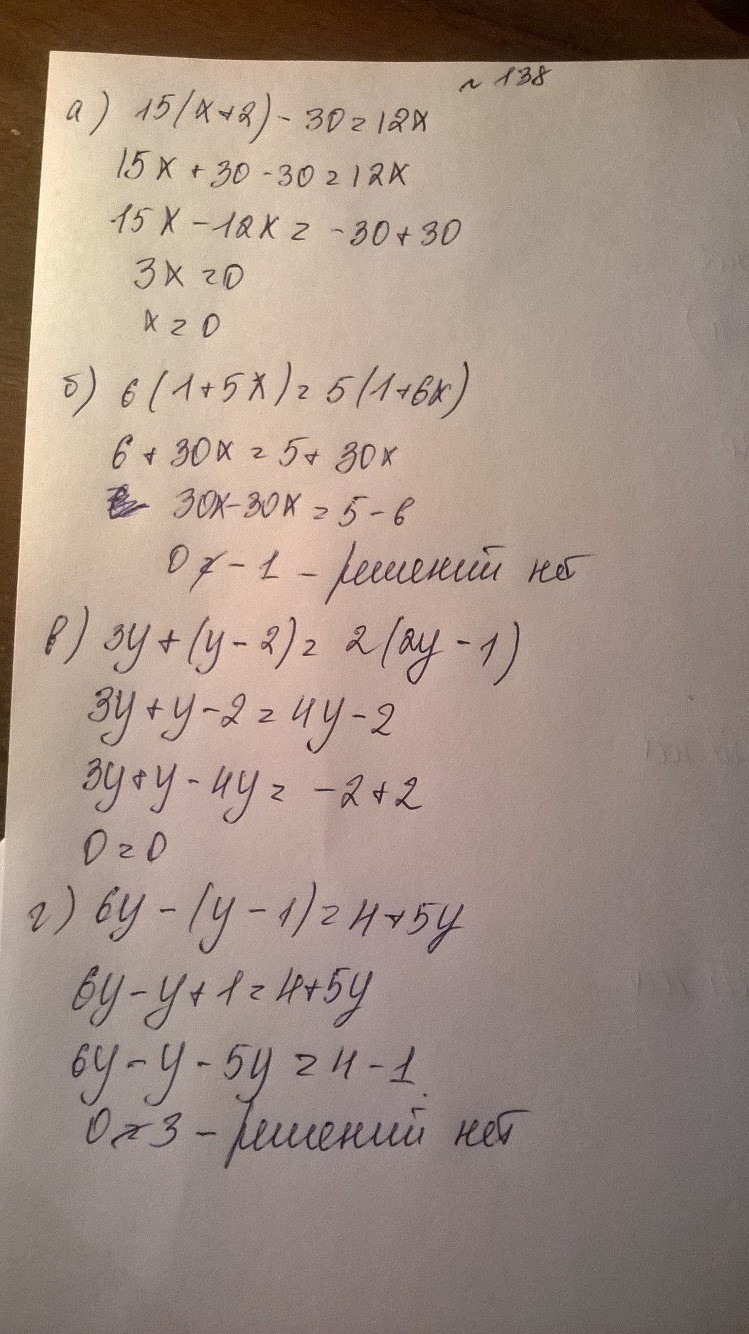 ~ 138
а) 15(х+2) - 30 = 12х
15х + 30 - 30 = 12х
15х - 12х = -30 + 30
3х = 0
х = 0
б) 6(1+5х) = 5(1+6х)
6 + 30х = 5 + 30х
30х - 30х = 5 - 6
0 ≠ - 1 - решений нет
в) 3y + (y - 2) = 2(2y - 1)
3y + y - 2 = 4y - 2
3y + y - 4y = -2 + 2
0 = 0
г) 6y - (y - 1) = 4 + 5y
6y - y + 1 = 4 + 5y
6y - y - 5y = 4 - 1
0 ≠ 3 - решений нет